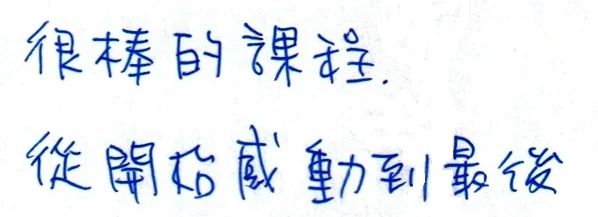 很棒的課程.
從開始感動到最後